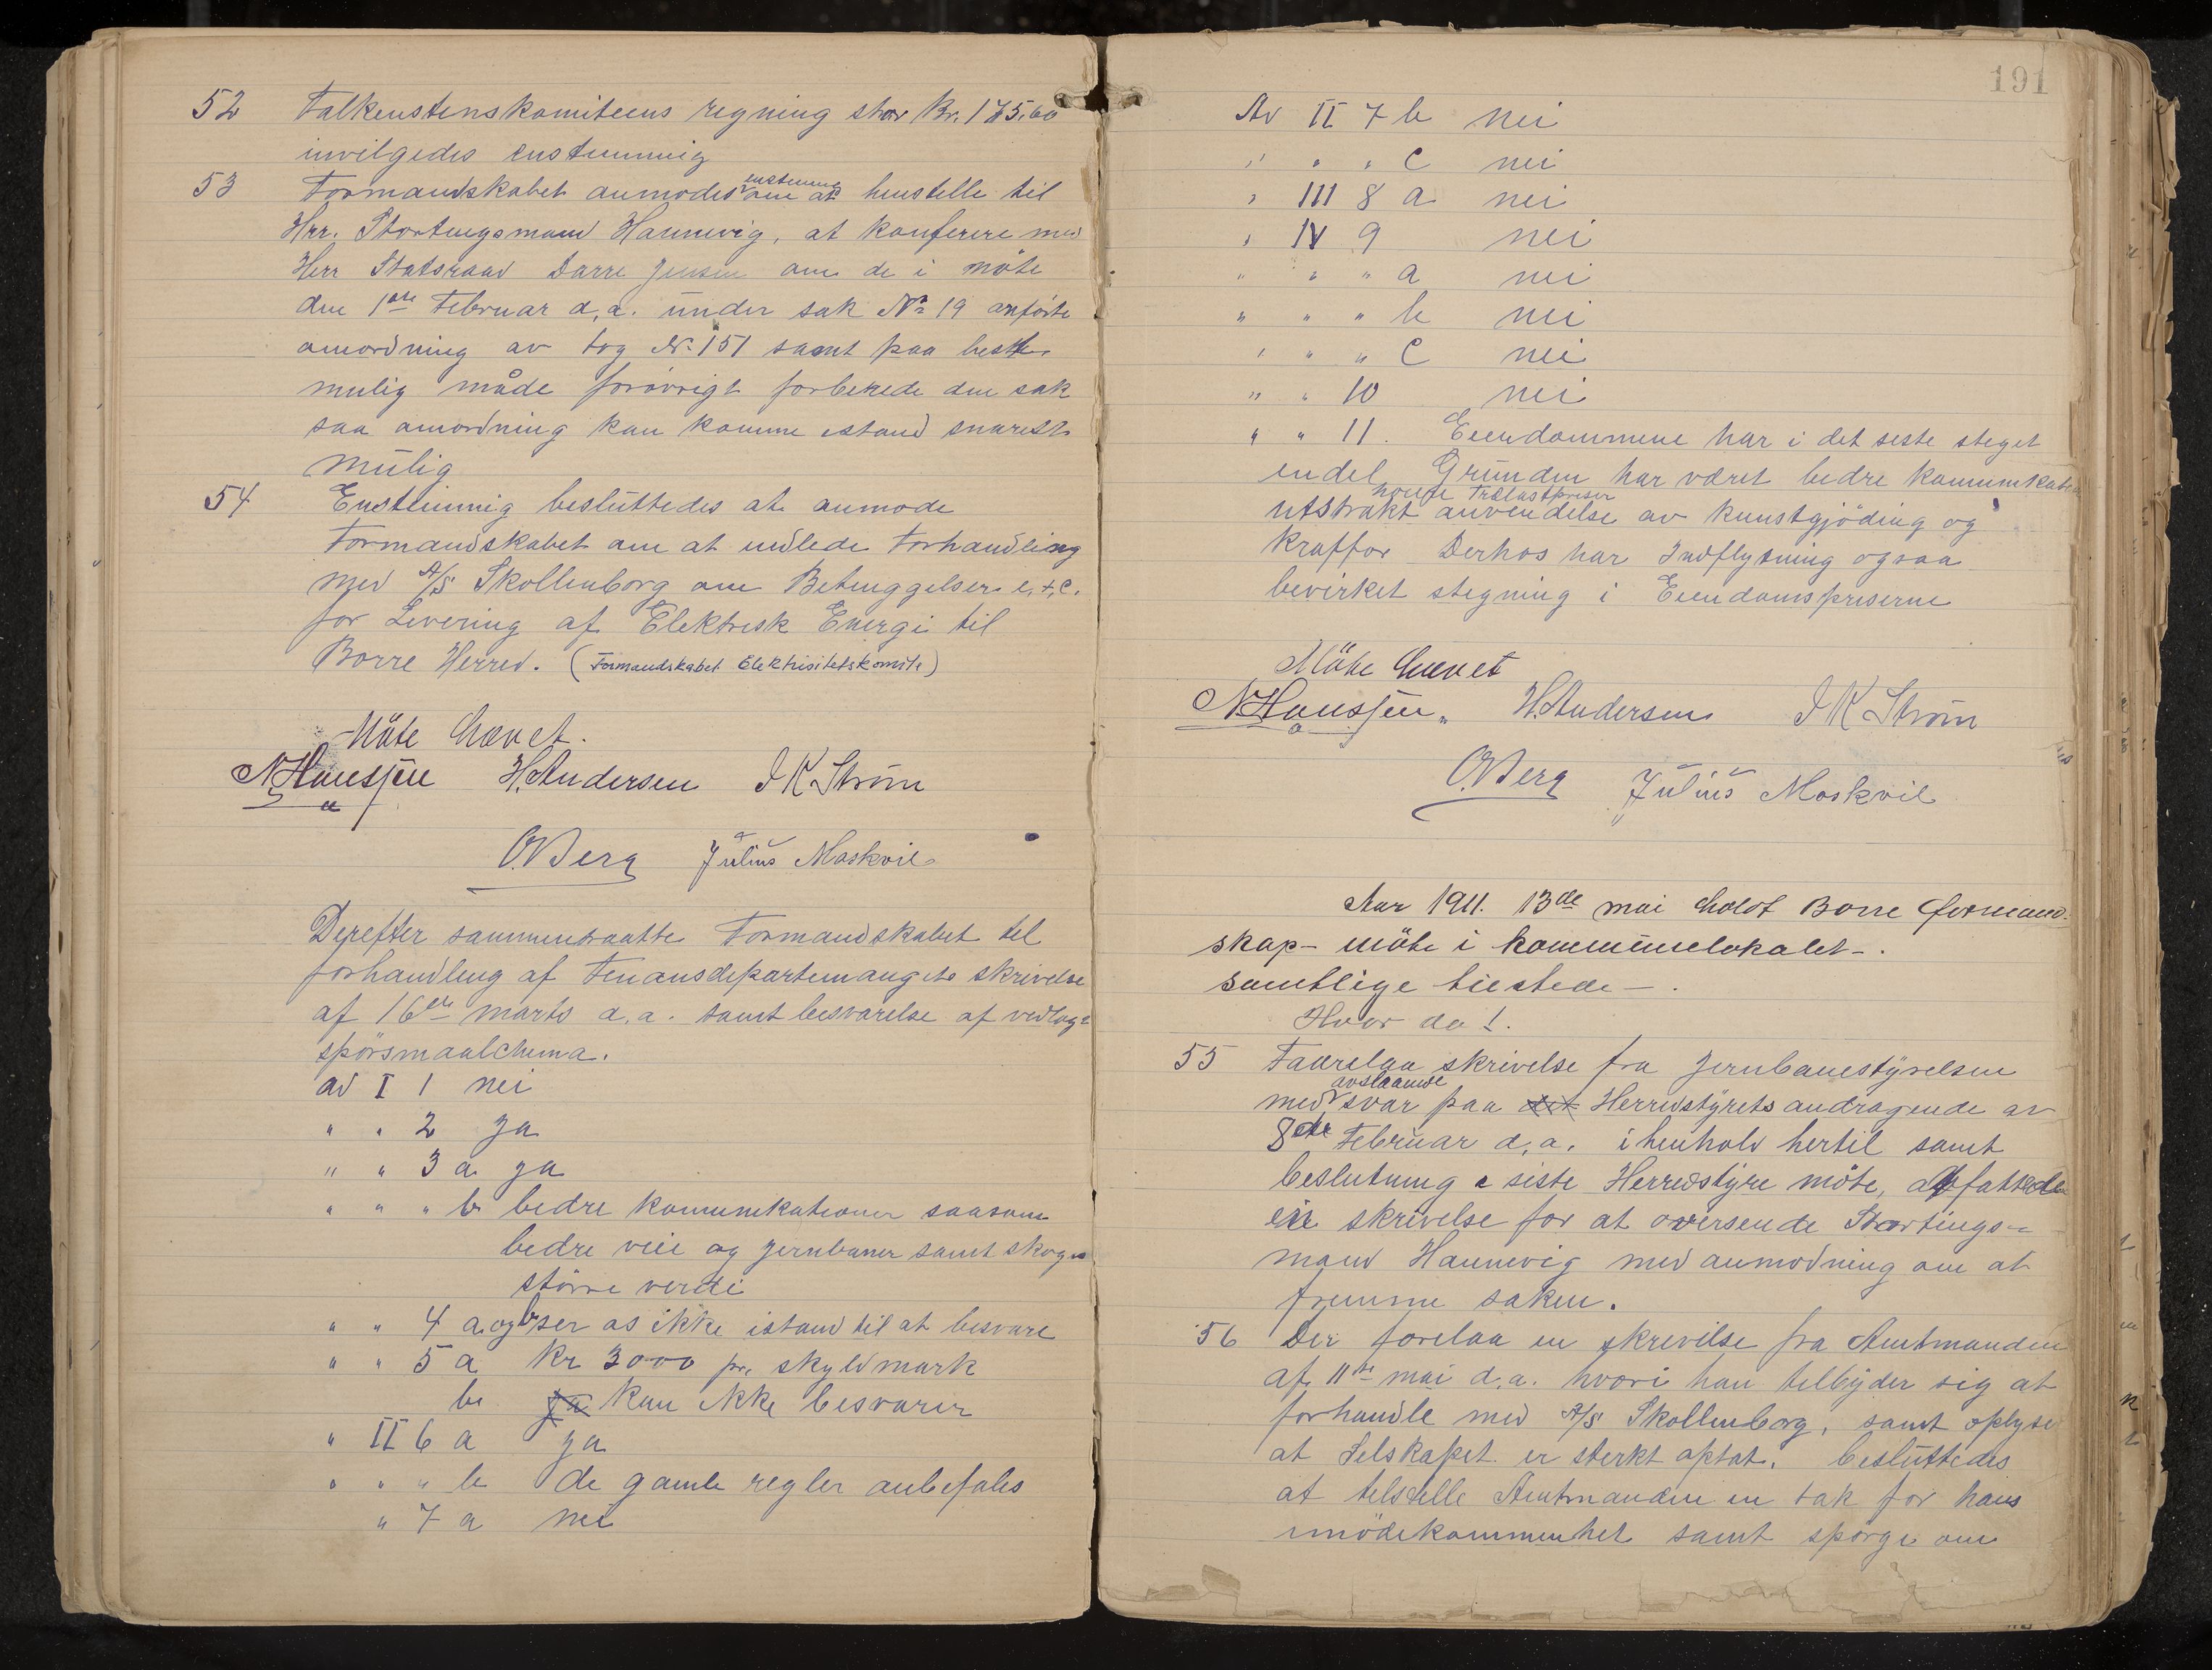 52 Falkenstenskomiteens regning stor Kr. 175,60
invilgedes enstemmig
53 Formandskabet anmodes enstemmig om at henstille til
Hrr. Stortingsmand Hannevig, at konferere med
Herr Statsraad Darre Jensen om de i möte
den 1ste Februar d,a. under sak No 19 anförte
anordning av tog N. 151 samt paa beste
mulig måde forövrigt forberede den sak
saa anordning kan komme istand snarest
mulig
54 Enstemmig besluttedes at anmode
Formandskabet om at indlede Forhandling
med A/S Skollenborg om Betinggelser e.t.c.
for Levering af Elektrisk Energi til
Borre Herred. (Formandskabet Elektrisitetskomite)
Möte hævet.
N. Hanssen H. Andersen I K Strøm
O. Berg Julius Moskvil
Derefter sammentraatte Formandskabet til
forhandling af Finansdepartemangets skrivelse
af 16de marts d.a. samt besvarelse af vedlagt
spörsmaalchema.
ad I 1 nei
" " 2 ja
" " 3 a ja
" " " b bedre komunikationer saasom
bedre veie og jernbaner samt skogens
större verdi
" " 4 a og b ser os ikke istand til at besvare
" " 5 a Kr 3000 pr. skyldmark
b ja kan ikke besvares
" II 6 a ja
" " " b de gamle regler anbefales
" 7 a nei
191
Av II 7 b nei
" " " c nei
" III 8 a nei
" IV 9 nei
" " " a nei
" " " b nei
" " " c nei
" " 10 nei
" " 11. Eiendommene har i det siste steget
endel Grunden har været bedre komunikation
höie Trælastpriser
utstrakt anvendelse av kunstgjöding og
kraffor Derhos har Indflytning ogsaa
bevirket stegning i Eiendomspriserne
Möte hævet
N. Hanssen H. Andersen I K Strøm
O. Berg Julius Moskvil
Aar 1911. 13de mai holdt Borre formand-
skap- möte i kommunelokalet-.
samtlige tilstede-.
Hvor da!.
55 Forelaa skrivelse fra Jernbanestyrelsen
med avslaaende svar paa det Herredstyrets andragende av
8de Februar d,a. i henhold hertil samt
beslutning i siste Herredstyre möte, affattedes
en skrivelse for at oversende Stortings-
mand Hannevig med anmodning om at
fremme saken.
56 Der forelaa en skrivelse fra Amtmanden
af 11te mai d.a. hvori han tilbyder sig at
forhandle med A/S Skollenborg, samt oplyse
at Selskapet er sterkt optat. besluttedes
at tilstille Amtmanden en tak for hans
imödekommenhet samt spörge om